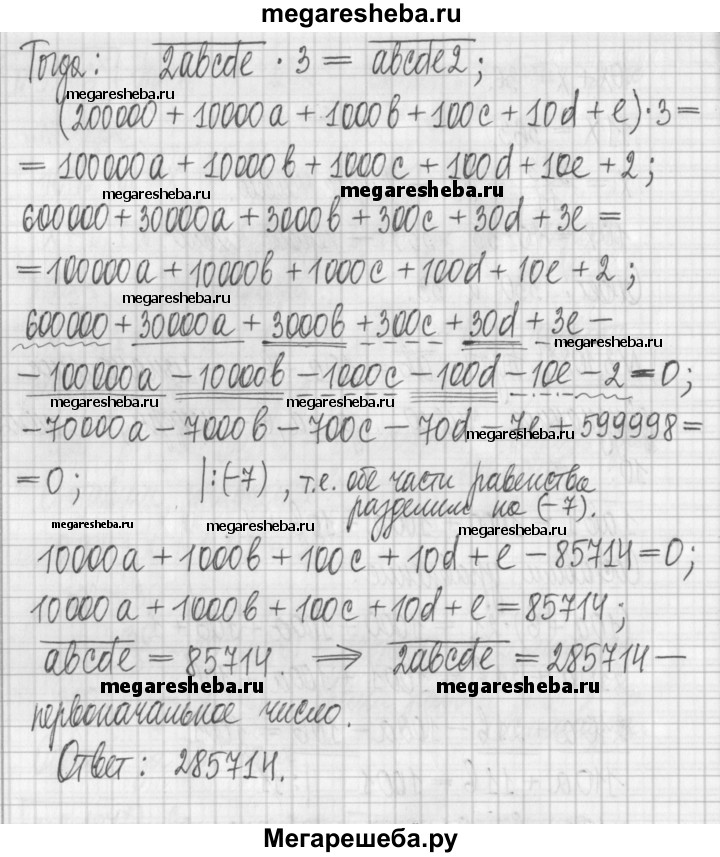 megaresheba.ru
Тогда: 2abcde · 3 = abcde2;
megaresheba.ru
(200000 + 10000a + 1000b + 100c + 10d + e)·3 =
= 100000a + 10000b + 1000c + 100d + 10e + 2;
megaresheba.ru megaresheba.ru
600000 + 30000a + 3000b + 300c + 30d + 3e =
= 100000a + 10000b + 1000c + 100d + 10e + 2;
megaresheba.ru
600000 + 30000a + 3000b + 300c + 30d + 3e −
megaresheba.ru
− 100000a − 10000b − 1000c − 100d − 10e − 2 = 0;
megaresheba.ru megaresheba.ru
−70000a − 7000b − 700c − 70d − 7e + 599998 =
megaresheba.ru
= 0; |:(−7), т.е. обе части равенства
разделим на (−7).
megaresheba.ru megaresheba.ru
10000a + 1000b + 100c + 10d + e − 85714 = 0;
10000a + 1000b + 100c + 10d + e = 85714;
abcde = 85714. ⟹ 2abcde = 285714 —
megaresheba.ru megaresheba.ru
первоначальное число.
Ответ: 285714.
megaresheba.ru
Мегарешеба.ру